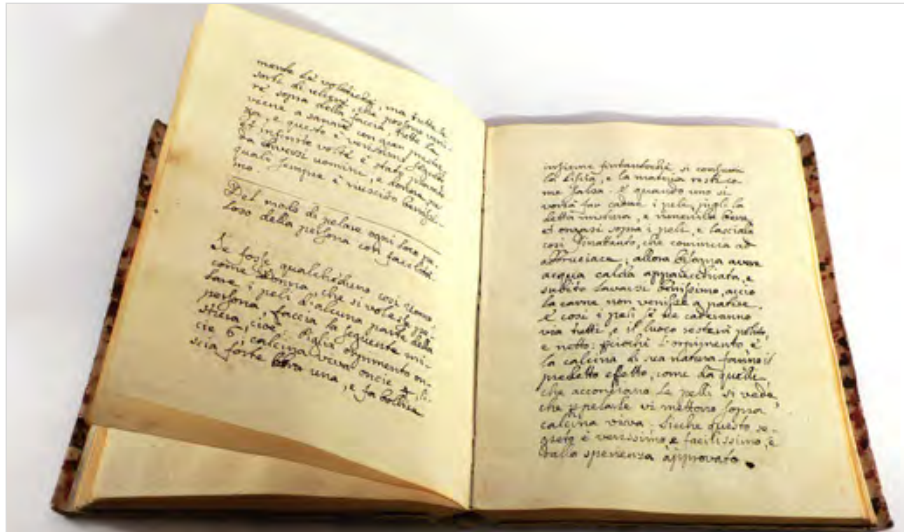 mente le volatiche, ma tutte le
sorti di
re sopra della faccia, tutte le
viene a sanare con gran prestez
za, e questo è verissimo,
et infinite volte è stato
da diversi uomini, e donne,
quali sempre è riuscito
mo.
Del modo di pelare ogni loco pe-
loso della persona con facilità.
Se fosse qualcheduno così uomo
come donna, che si volesse pe-
lare i peli d'alcuna parte della
persona, faccia la seguente mi-
stura, cioè, piglia orpimento on-
cie 6, calcina viva oncie li-
scia forte una, e fa bollire
insieme fintantochè si consumi
la lisia, e la materia resti co
me salsa. E quando uno si
vorrà far cadere i peli, pigli la
detta mistura, e
et ongasi sopra i peli, e lasciala
così, che comincia ad
abbruciare; allora bisogna avere
acqua calda apparecchiata, e
subito lavarsi benissimo, acciò
la carne non venisse a patire
E così i peli se ne caderanno
via tutti, e il luoco resterà polito,
e netto; perchè l'orpimento e
la calcina di sua natura fanno il
predetto effetto, come da quelli,
che acconciano le pelli si vede,
che p pelarle vi mettono sopra
calcina viva. Sicchè questo se-
greto è verissimo, e facilissimo, e
dallo sperienza approvato.